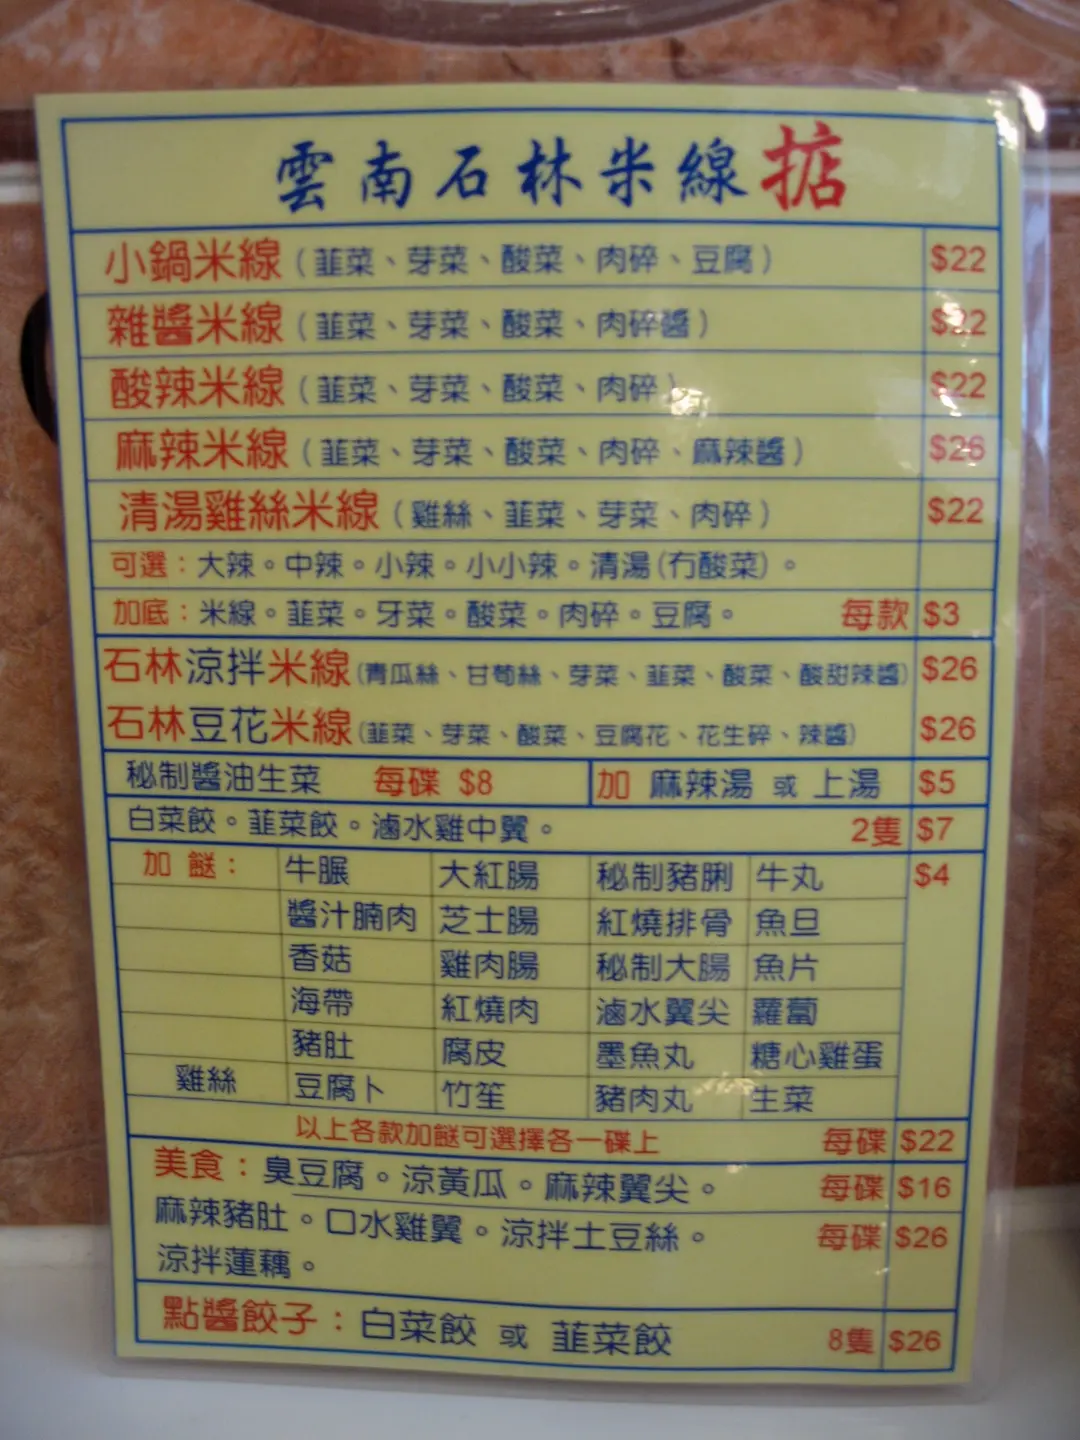 雲南石林米線掂
小鍋米線（韮菜、芽菜、酸菜、肉碎、豆腐） $22
雜醬米線（韮菜、芽菜、酸菜、肉碎醬） $22
酸辣米線（韮菜、芽菜、酸菜、肉碎） $22
麻辣米線（韮菜、芽菜、酸菜、肉碎、麻辣醬） $26
清湯雞絲米線（雞絲、韮菜、芽菜、肉碎） $22
可選：大辣。中辣。小辣。小小辣。清湯(冇酸菜)。
加底：米線。韮菜。牙菜。酸菜。肉碎。豆腐。 每款 $3
石林涼拌米線(青瓜絲、甘荀絲、芽菜、韮菜、酸菜、酸甜辣醬) $26
石林豆花米線(韮菜、芽菜、酸菜、豆腐花、花生碎、辣醬) $26
秘制醬油生菜 每碟 $8 加 麻辣湯 或 上湯 $5
白菜餃。韮菜餃。滷水雞中翼。 2隻 $7
加 餸： 牛𦟌 大紅腸 秘制豬脷 牛丸 $4
醬汁腩肉 芝士腸 紅燒排骨 魚旦
香菇 雞肉腸 秘制大腸 魚片
海帶 紅燒肉 滷水翼尖 蘿蔔
豬肚 腐皮 墨魚丸 糖心雞蛋
雞絲 豆腐卜 竹笙 豬肉丸 生菜
以上各款加餸可選擇各一碟上 每碟 $22
美食：臭豆腐。涼黃瓜。麻辣翼尖。 每碟 $16
麻辣豬肚。口水雞翼。涼拌土豆絲。 每碟 $26
涼拌蓮藕。
點醬餃子：白菜餃 或 韮菜餃 8隻 $26